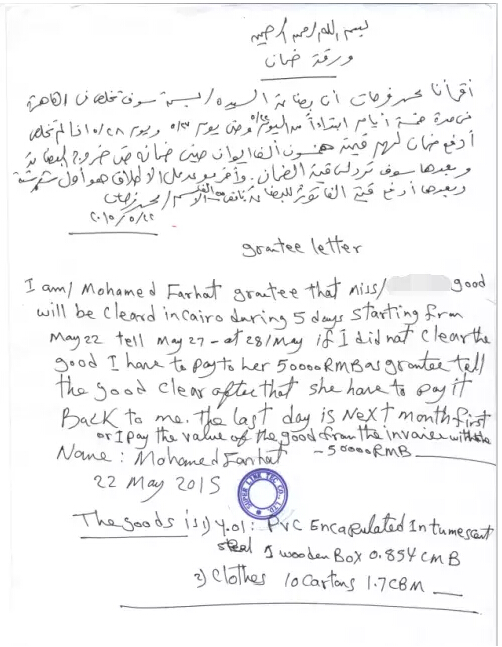 بسم الله الرحمن الرحيم
ورقة ضمان
أقر أنا محمد فرحات أن بضاعة السيدة / سوف تخلص فى القاهرة
فى مدة خمسة أيام ابتداءاً من اليوم ٥/٢٢ وحتى يوم ٥/٢٧ ويوم ٥/٢٨ اذا لم تخلص
أدفع ضمان لهم قيمة خمسون ألف ايوان صينى ضمانه حتى خروج البضاعة
وبعدها سوف ترد لى قيمة الضمان. وأخر موعد على الاطلاق هو أول شهر ستة
وبعدها أدفع قيمة الفاتورة للبضاعة الاسم / محمد فرحات
٢٠١٥/٥/٢٢
grantee letter
I am/ Mohamed Farhat grantee that Miss/ good
will be cleard in cairo during 5 days starting from
May 22 tell May 27 - at 28/May if I did not clear the
good I have to pay to her 50000 RMB as grantee tell
the good clear after that she have to pay it
Back to me. the last day is Next month first
or I pay the value of the good from the invoice with the
Name: Mohamed Farhat - 50000 RMB
22 May 2015
SUPER LINK TEC CO., LTD.
The goods is 1) Y.01: PVC Encapulated Intumescent
steal 1 wooden Box 0.854 CMB
2) Clothes 10 Cartons 1.7 CBM